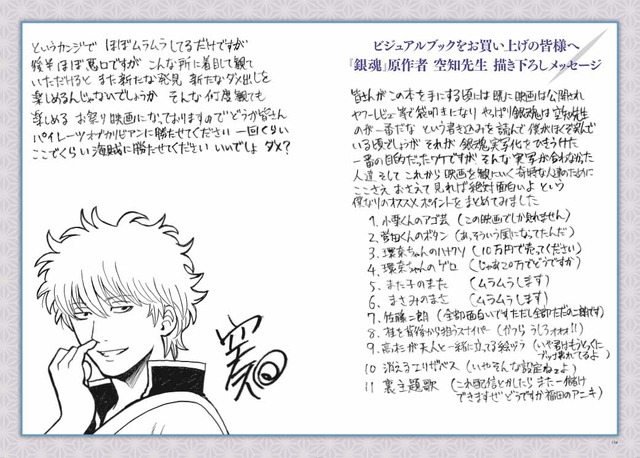 ビジュアルブックをお買い上げの皆様へ
『銀魂』原作者 空知先生 描き下ろしメッセージ
皆さんがこの本を手にする頃には既に映画は公開され
ヤフーレビュー等で袋叩きになり やっぱり銀魂は空知先生
のが一番だな という書き込みを読んで 僕がほくそ笑んで
いる頃でしょうが それが銀魂実写化をひきうけた
一番の目的だったワケですが そんな実写が合わなかった
人達 そして これから映画を観にいく奇特な人達のために
ここさえ おさえて見れば絶対面白いよ という
僕なりのオススメポイントをまとめてみました
1. 小栗くんのアゴ芸 (この映画でしか見れません)
2. 菅田くんのボタン (あっそういう風になってたんだ)
3. 環奈ちゃんのハナクソ (10万円で売ってください)
4. 環奈ちゃんのゲロ (じゃあ20万でどうですか)
5. また子のまた (ムラムラします)
6. まさみのまさ (ムラムラします)
7. 佐藤二朗 (全部面白いです ただし全部ただの二朗です)
8. 桂を背後から狙うスナイパー (かつら うしろォォォ!!)
9. 高杉が天人と一緒に立ってる絵ヅラ (いや君はもうとっくに
ブッ壊れてるよ)
10 消えるエリザベス (いやそんな設定ねーよ)
11 裏主題歌 (これ配信とかしたら また一儲け
できますぜ どうですか福田のアニキ)
というカンジで ほぼムラムラしてるだけですが
後半ほぼ悪口ですが こんな所に着目して観て
いただけると また新たな発見 新たなダメ出しを
楽しめるんじゃないでしょうか そんな何度観ても
楽しめる お祭り映画になっておりますので どうか皆さん
パイレーツオブカリビアンに勝たせてください 一回くらい
ここでくらい海賊に勝たせてください いいでしょ ダメ?
空知